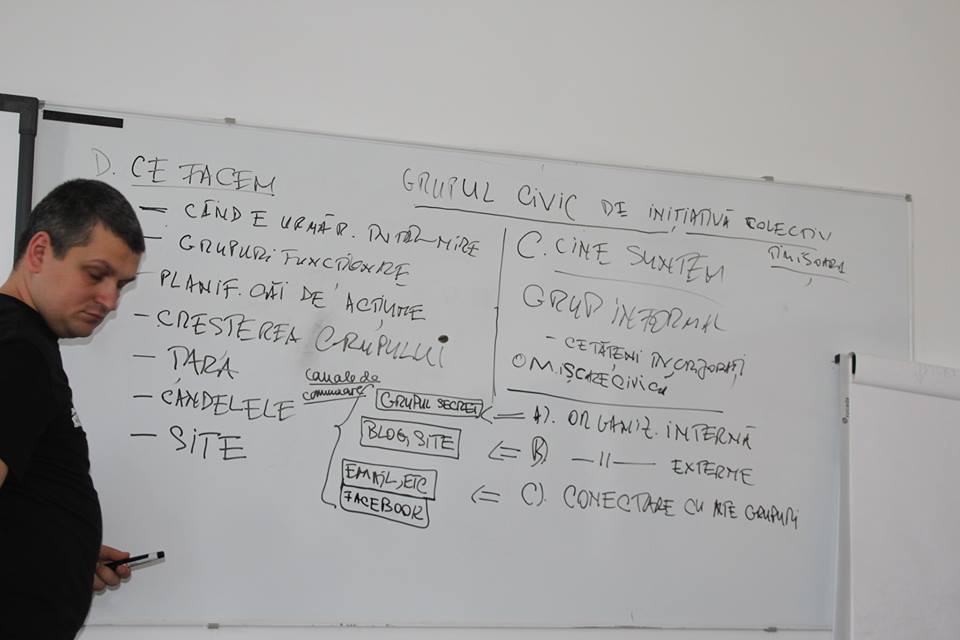 GRUPUL CIVIC DE INIȚIATIVĂ COLECTIV
TIMIȘOARA
D. CE FACEM
— CÂND E URMĂR. ÎNTÂLNIRE
— GRUPURI FUNCȚIONARE
— PLANIF. CĂI DE ACȚIUNE
— CREȘTEREA GRUPULUI
— ȚARĂ
— CANDELELE
— SITE
C. CINE SUNTEM
GRUP INFORMAL
- CETĂȚENI ÎNCREZĂTORI
O MIȘCARE CIVICĂ
canale de
comunicare
GRUPUL SECRET <= A). ORGANIZ. INTERNĂ
BLOG, SITE <= B) —||— EXTERNE
EMAIL, ETC
FACEBOOK <= C). CONECTARE CU ALTE GRUPURI